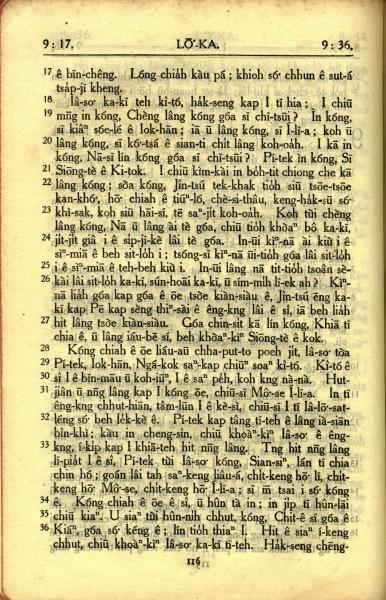 9 : 17.
LŌ͘-KA.
9 : 36.
17 ê bīn-chêng. Lóng chiáh kàu pá; khioh só͘ chhun ê sut-á
tsáp-jī kheng.
18 Iâ-so͘ ka-kī teh kî-tó, hák-seng kap I tī hia; I chiū
19 mn̄g in kóng, Chèng lâng kóng góa sī chī-tsūi? In kóng,
sī kiâⁿ sóe-lé ê Iok-hān; iā ū lâng kóng, sī Í-lī-a; koh ū
20 lâng kóng, sī kó͘-tsá ê sian-ti chit lâng koh-oáh. I kā in
kóng, Nā-sī lín kóng góa sī chī-tsūi? Pí-tek ìn kóng, Sī
21 Siōng-tè ê Ki-tok. I chiū kìm-kài in bó-tit chiong che kā
22 lâng kóng; sòa kóng, Jîn-tsú tek-khak tióh siū tsōe-tsōe
kan-khó͘, hō͘ chiah ê tiúⁿ-ló, chè-si-thâu, keng-hák-sū só͘
23 khì-sak, koh siū hāi-sí, tē saⁿ-jit koh-oáh. Koh tùi chèng
lâng kóng, Nā ū lâng ài tè góa, chiū tióh khòaⁿ bô ka-kī,
24 jit-jit giâ i ê sip-jī-kè lâi tè góa. In-ūi kìⁿ-nā ài kiù i ê
sìⁿ-miā ê beh sit-lóh i; tsóng-sī kìⁿ-nā ūi-tióh góa lâi sit-lóh
25 i ê sìⁿ-miā ê teh-beh kiù i. In-ūi lâng nā tit-tióh tsoân sè-
26 kài lâi sit-lóh ka-kī, sún-hoāi ka-kī, ū sím-mih lī-ek ah? Kìⁿ-
nā liáh góa kap góa ê ōe tsòe kiàn-siàu ê, Jîn-tsú ēng ka-
kī kap Pē kap sèng thiⁿ-sài ê êng-kng lâi ê sî, iā beh liáh
27 hit lâng tsòe kiàn-siàu. Góa chin-sit kā lín kóng, Khiā tī
chia ê, ū lâng iáu-bē sí, beh khòaⁿ-kìⁿ Siōng-tè ê kok.
28 Kóng chiah ê ōe liáu-āu chha-put-to poeh jit, Iâ-so͘ tòa
29 Pí-tek, Iok-hān, Ngá-kok saⁿ-kap chiūⁿ soaⁿ kî-tó. Kî-tó ê
30 sî I ê bīn-māu ū koh-iūⁿ, I ê saⁿ péh, koh kng nà-nà. Hut-
31 jiân ū nn̄g lâng kap I kóng ōe, chiū-sī Mô͘-se Í-lī-a. In tī
êng-kng chhut-hiān, tâm-lūn I ê kè-sì, chiū-sī I tī Iâ-lō͘-sat-
32 léng só͘ beh lék-kè ê. Pí-tek kap tâng tī-teh ê lâng ià-siān
bīn-khì; kàu in cheng-sîn, chiū khòaⁿ-kìⁿ Iâ-so͘ ê êng-
33 kng, í-kip kap I khiā-teh hit nn̄g lâng. Tng hit nn̄g lâng
lī-piát I ê sî, Pí-tek tùi Iâ-so͘ kóng, Sian-siⁿ, lán tī chia
chin hó; goán lâi tah saⁿ-keng liâu-á, chit-keng hō͘ lí, chit-
keng hō͘ Mô͘-se, chit-keng hō͘ Í-lī-a; sī m̄ tsai i só͘ kóng
34 ê. Kóng chiah ê ōe ê sî, ū hûn tà in; in jip tī hûn-lāi
35 chiū kiaⁿ. U siaⁿ tùi hûn-nih chhut, kóng, Chit-ê sī góa ê
36 Kiáⁿ, góa só͘ kéng ê; lín tióh thiaⁿ I. Hit ê siaⁿ í-keng
chhut, chiū khòaⁿ-kìⁿ Iâ-so͘ ka-kī tī-teh. Hák-seng chēng-
116